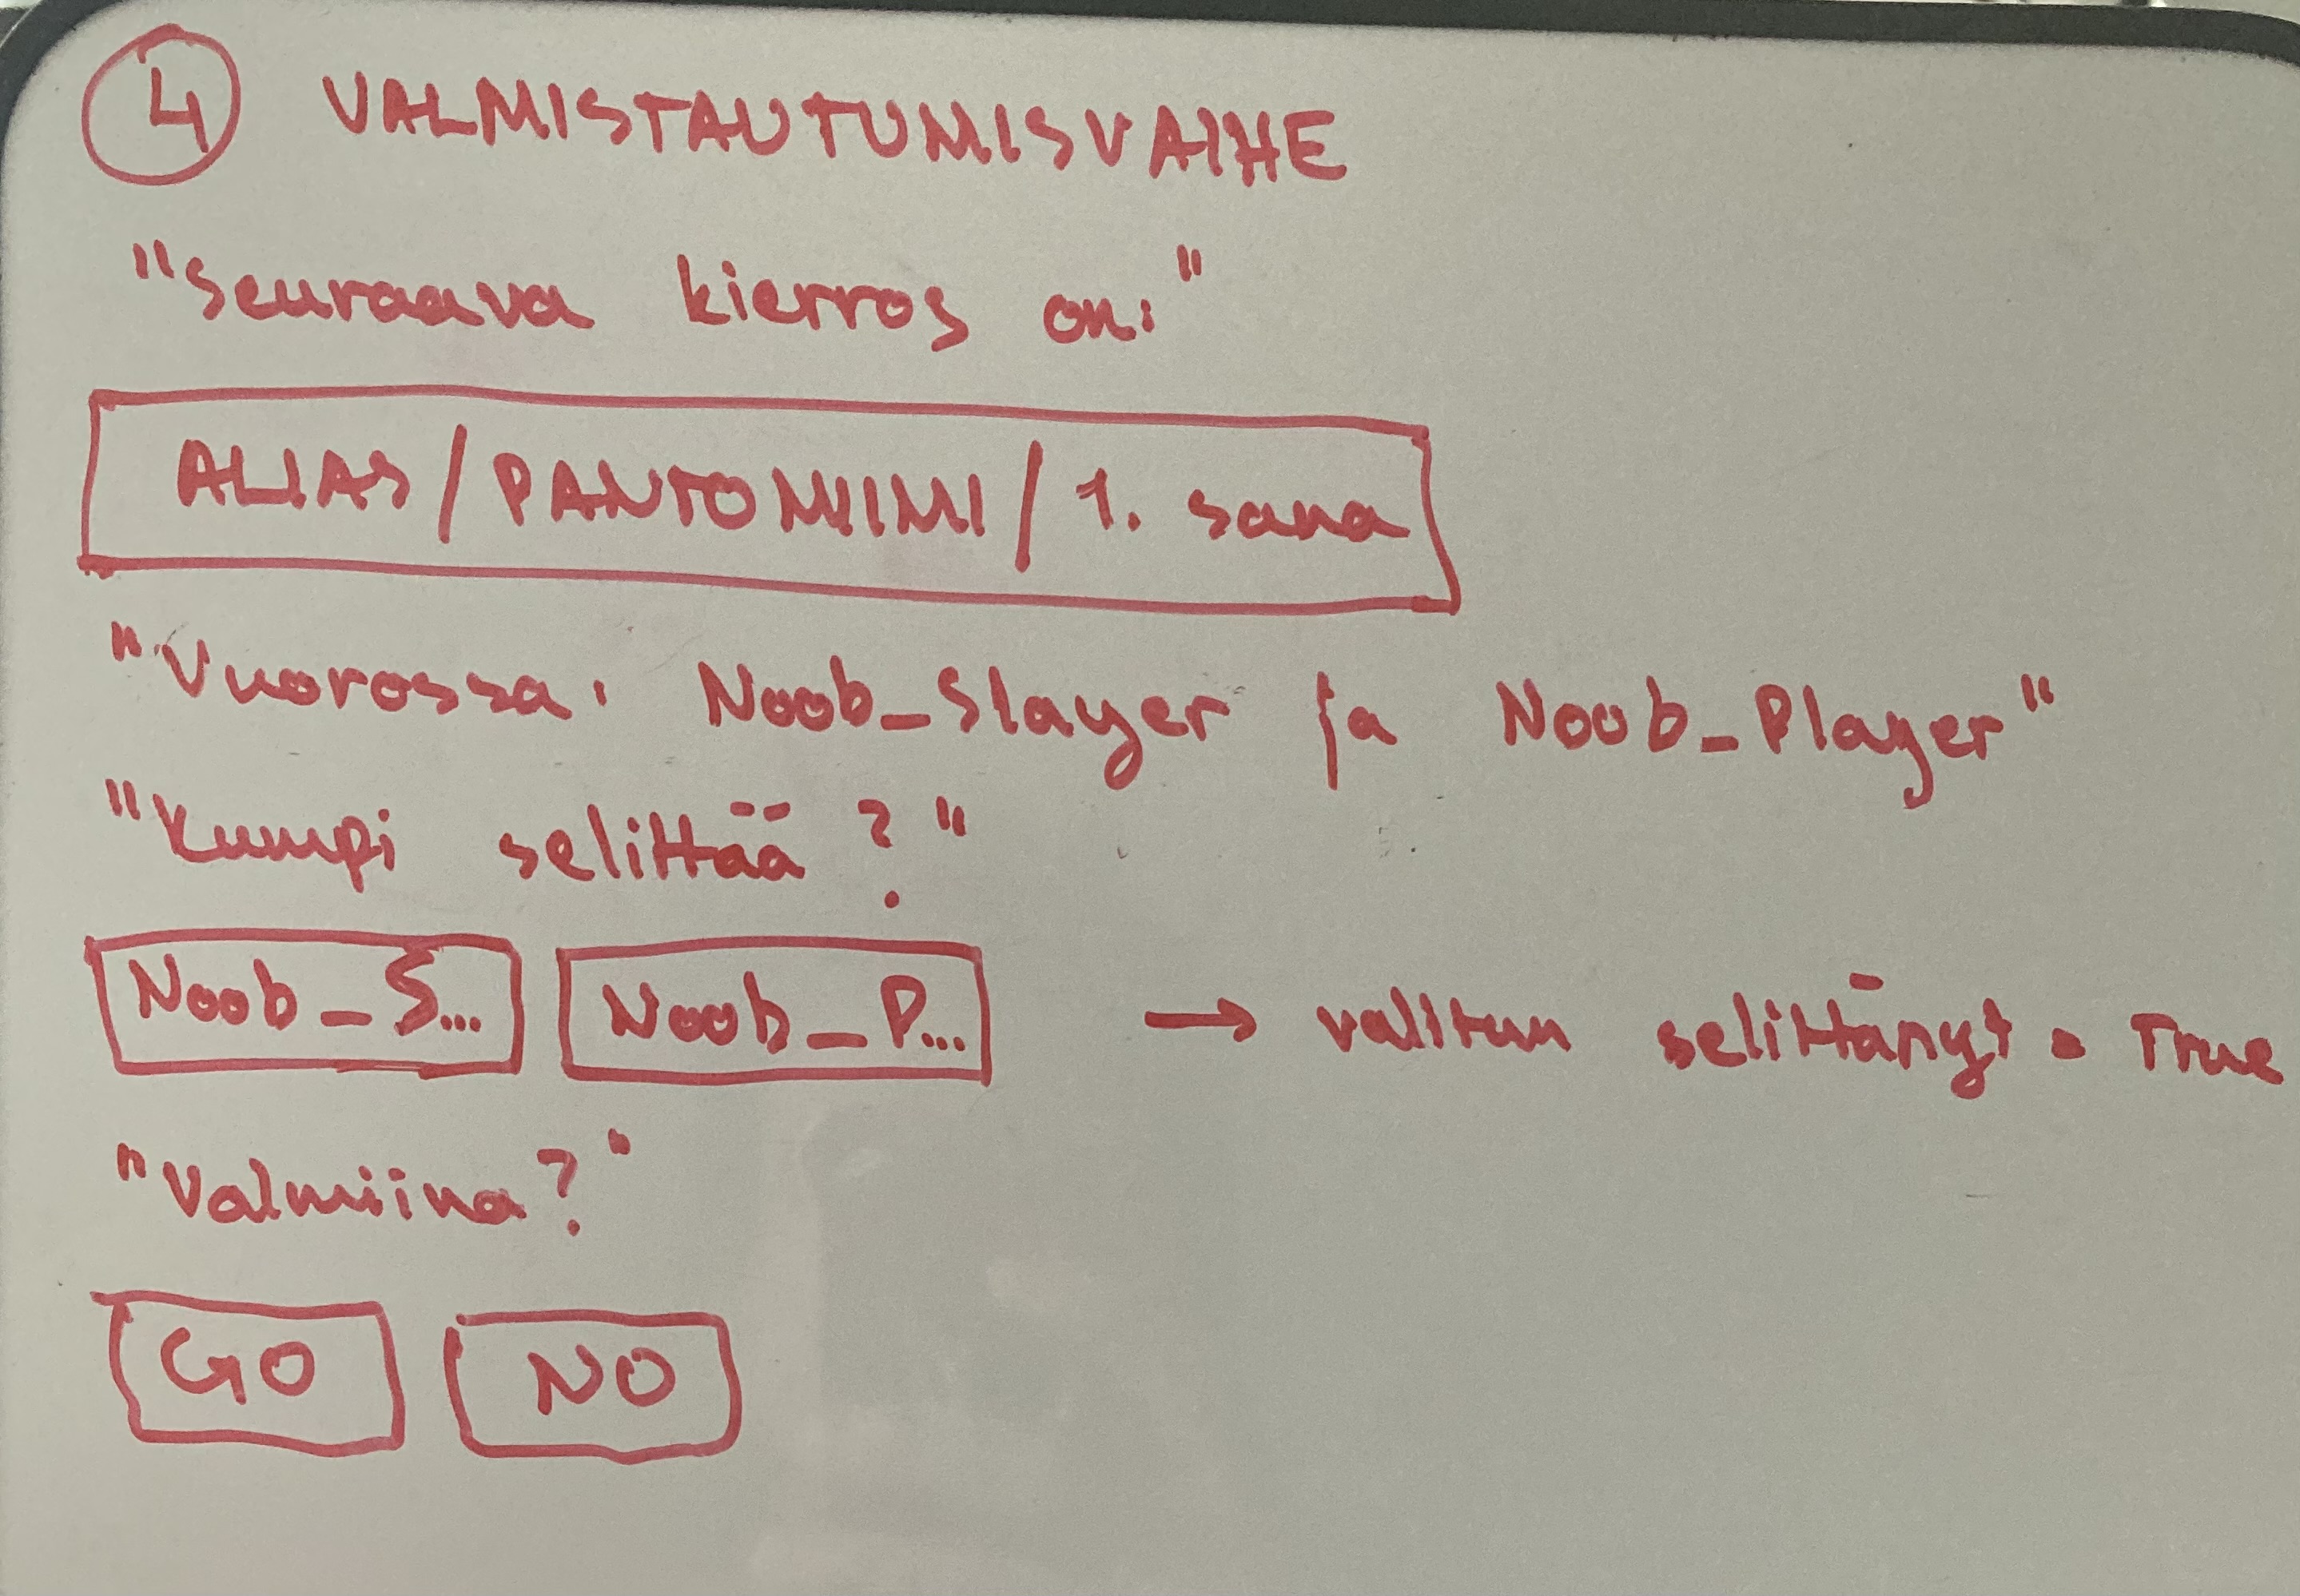 4 VALMISTAUTUMISVAIHE
"Seuraava kierros on:"
ALIAS / PANTOMIIMI / 1. sana
"Vuorossa: Noob_Slayer ja Noob_Player"
"Kumpi selittää?"
Noob_S... Noob_P... → valitun selittänyt = True
"Valmiina?"
GO NO